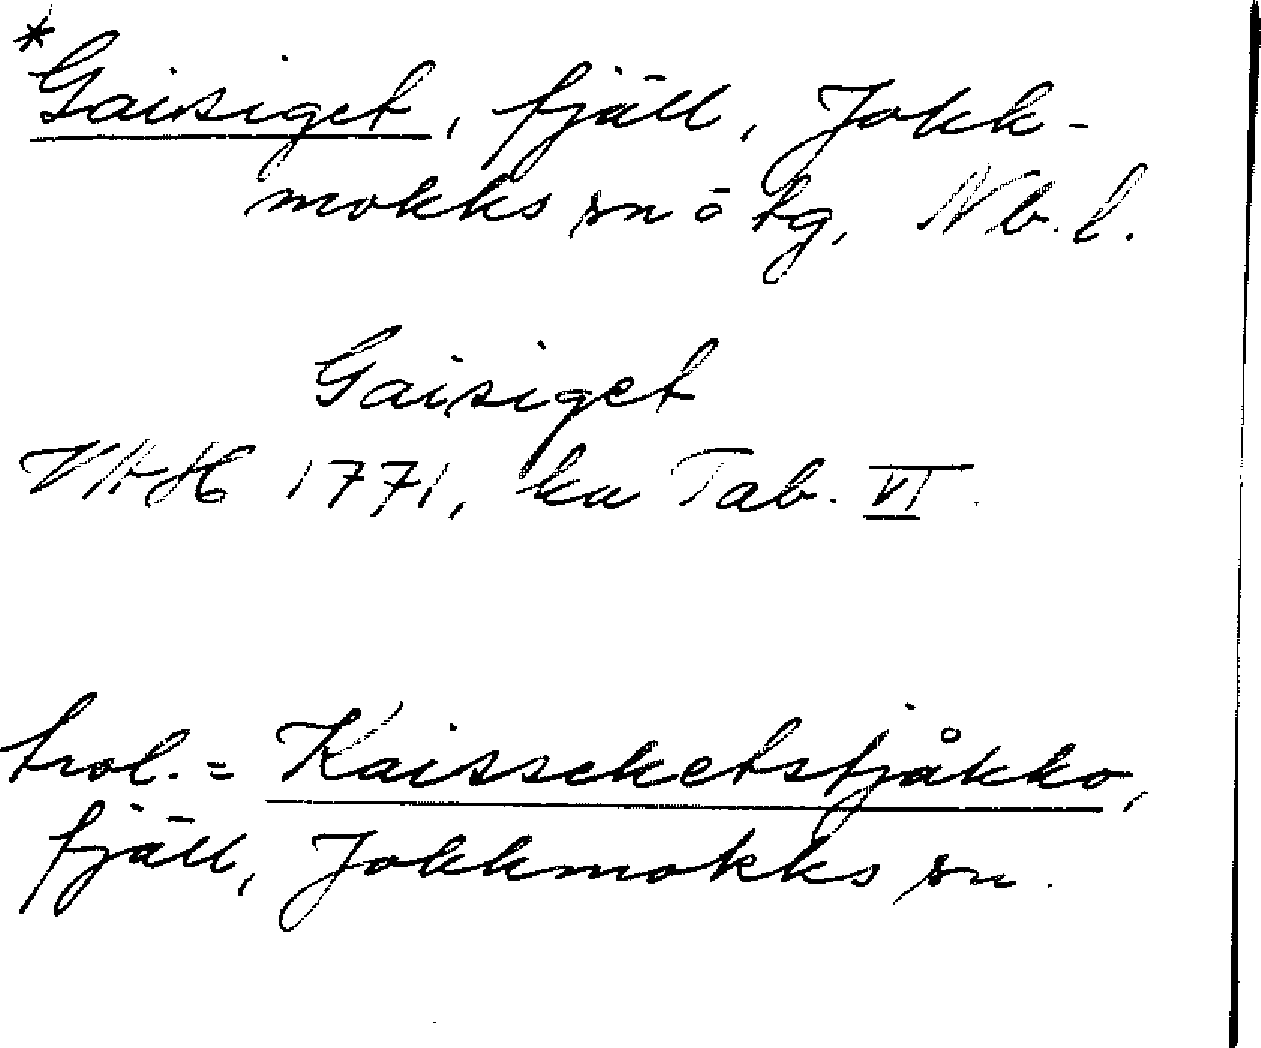 *Gaisiget, fjäll, Jokk-
mokks sn o tg, Nb. l.
Gaisiget
VAH 1771, ka Tab. VI.
trol. = Kaisseketstjåkko,
fjäll, Jokkmokks sn.